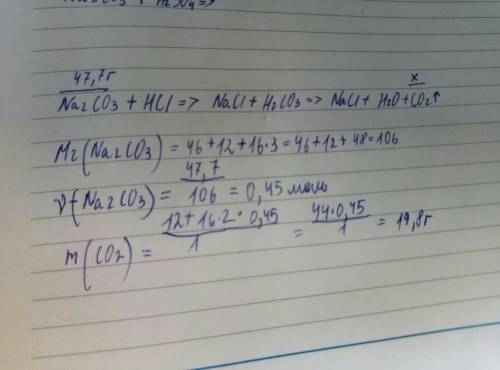 47,7г x
Na2CO3 + HCl => NaCl + H2CO3 => NaCl + H2O + CO2↑
Mr(Na2CO3) = 46+12+16·3 = 46+12+48 = 106
ν(Na2CO3) = 47,7/106 = 0,45 моль
m(CO2) = 12+16·2·0,45/1 = 44·0,45/1 = 19,8г